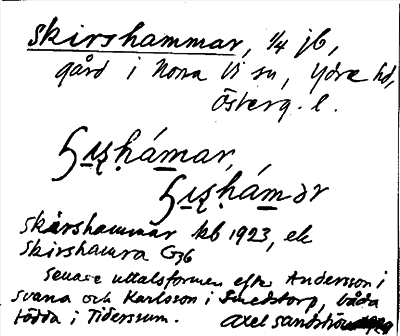 Skirshammar, 1/4 jb,
gård i Norra Vi sn, Ydre hd,
Österg. l.
Skirshammar kb 1923, ek
Skirshamra G36
Senare uttalsformen efter Andersson i
Svana och Karlsson i Smedstorp, båda
födda i Tidersrum. Axel Sandström